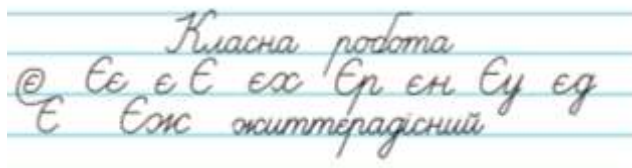 Класна робота
Є Єє є Є єх Єр єн Єу єд
Є Єж життєрадісний